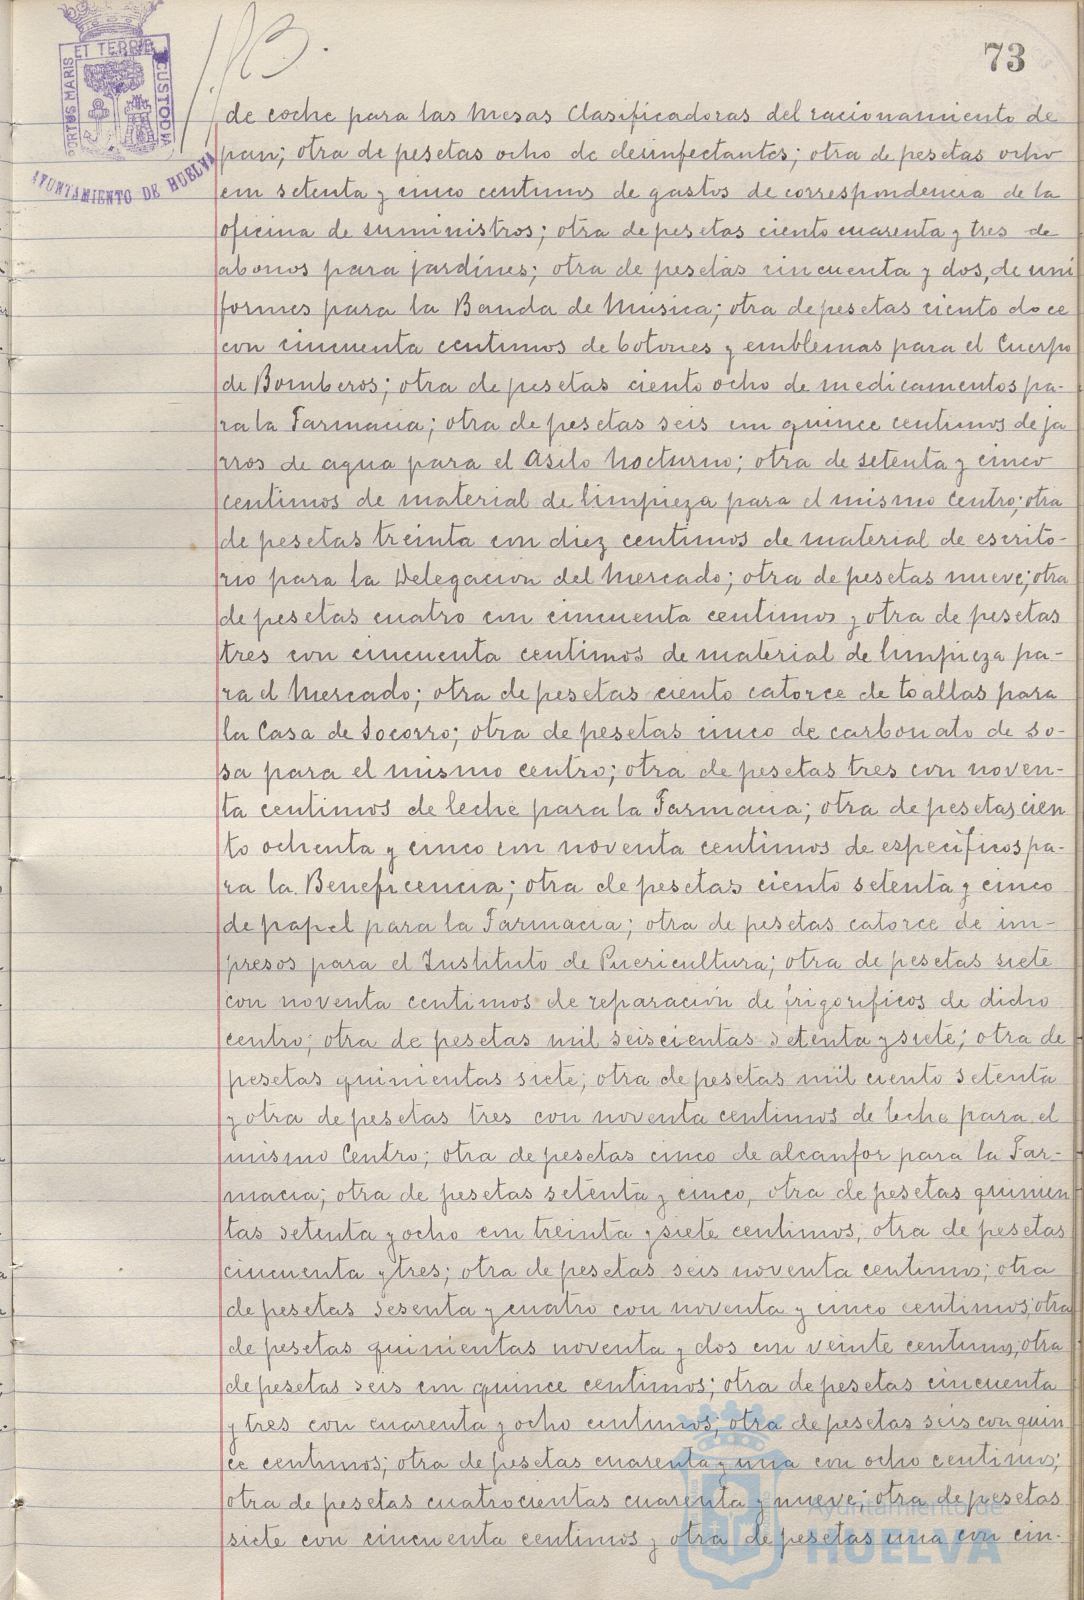 73
PORTUS MARIS ET TERRE CUSTODIA
AYUNTAMIENTO DE HUELVA
de coche para las Mesas Clasificadoras del racionamiento de
pan; otra de pesetas ocho de desinfectantes; otra de pesetas ocho
con setenta y cinco centimos de gastos de correspondencia de la
oficina de suministros; otra de pesetas ciento cuarenta y tres de
abonos para jardines; otra de pesetas cincuenta y dos, de uni
formes para la Banda de Musica; otra de pesetas ciento doce
con cincuenta centimos de botones y emblemas para el Cuerpo
de Bomberos; otra de pesetas ciento ocho de medicamentos pa-
ra la Farmacia; otra de pesetas seis con quince centimos de ja
rros de agua para el Asilo Nocturno; otra de setenta y cinco
centimos de material de limpieza para el mismo centro; otra
de pesetas treinta con diez centimos de material de escrito-
rio para la Delegacion del Mercado; otra de pesetas nueve; otra
de pesetas cuatro con cincuenta centimos y otra de pesetas
tres con cincuenta centimos de material de limpieza pa-
ra el Mercado; otra de pesetas ciento catorce de toallas para
la Casa de Socorro; otra de pesetas cinco de carbonato de so-
sa para el mismo centro; otra de pesetas tres con noven-
ta centimos de leche para la Farmacia; otra de pesetas cien
to ochenta y cinco con noventa centimos de especificos pa-
ra la Beneficencia; otra de pesetas ciento setenta y cinco
de papel para la Farmacia; otra de pesetas catorce de im-
presos para el Instituto de Puericultura; otra de pesetas siete
con noventa centimos de reparación de frigorificos de dicho
centro; otra de pesetas mil seiscientas setenta y siete; otra de
pesetas quinientas siete; otra de pesetas mil ciento setenta
y otra de pesetas tres con noventa centimos de leche para el
mismo Centro; otra de pesetas cinco de alcanfor para la Far-
macia; otra de pesetas setenta y cinco, otra de pesetas quinien
tas setenta y ocho con treinta y siete centimos; otra de pesetas
cincuenta y tres; otra de pesetas seis noventa centimos; otra
de pesetas sesenta y cuatro con noventa y cinco centimos; otra
de pesetas quinientas noventa y dos con veinte centimos; otra
de pesetas seis con quince centimos; otra de pesetas cincuenta
y tres con cuarenta y ocho centimos; otra de pesetas seis con quin
ce centimos; otra de pesetas cuarenta y una con ocho centimos;
otra de pesetas cuatrocientas cuarenta y nueve; otra de pesetas
siete con cincuenta centimos y otra de pesetas una con cin-
Ayuntamiento de
HUELVA